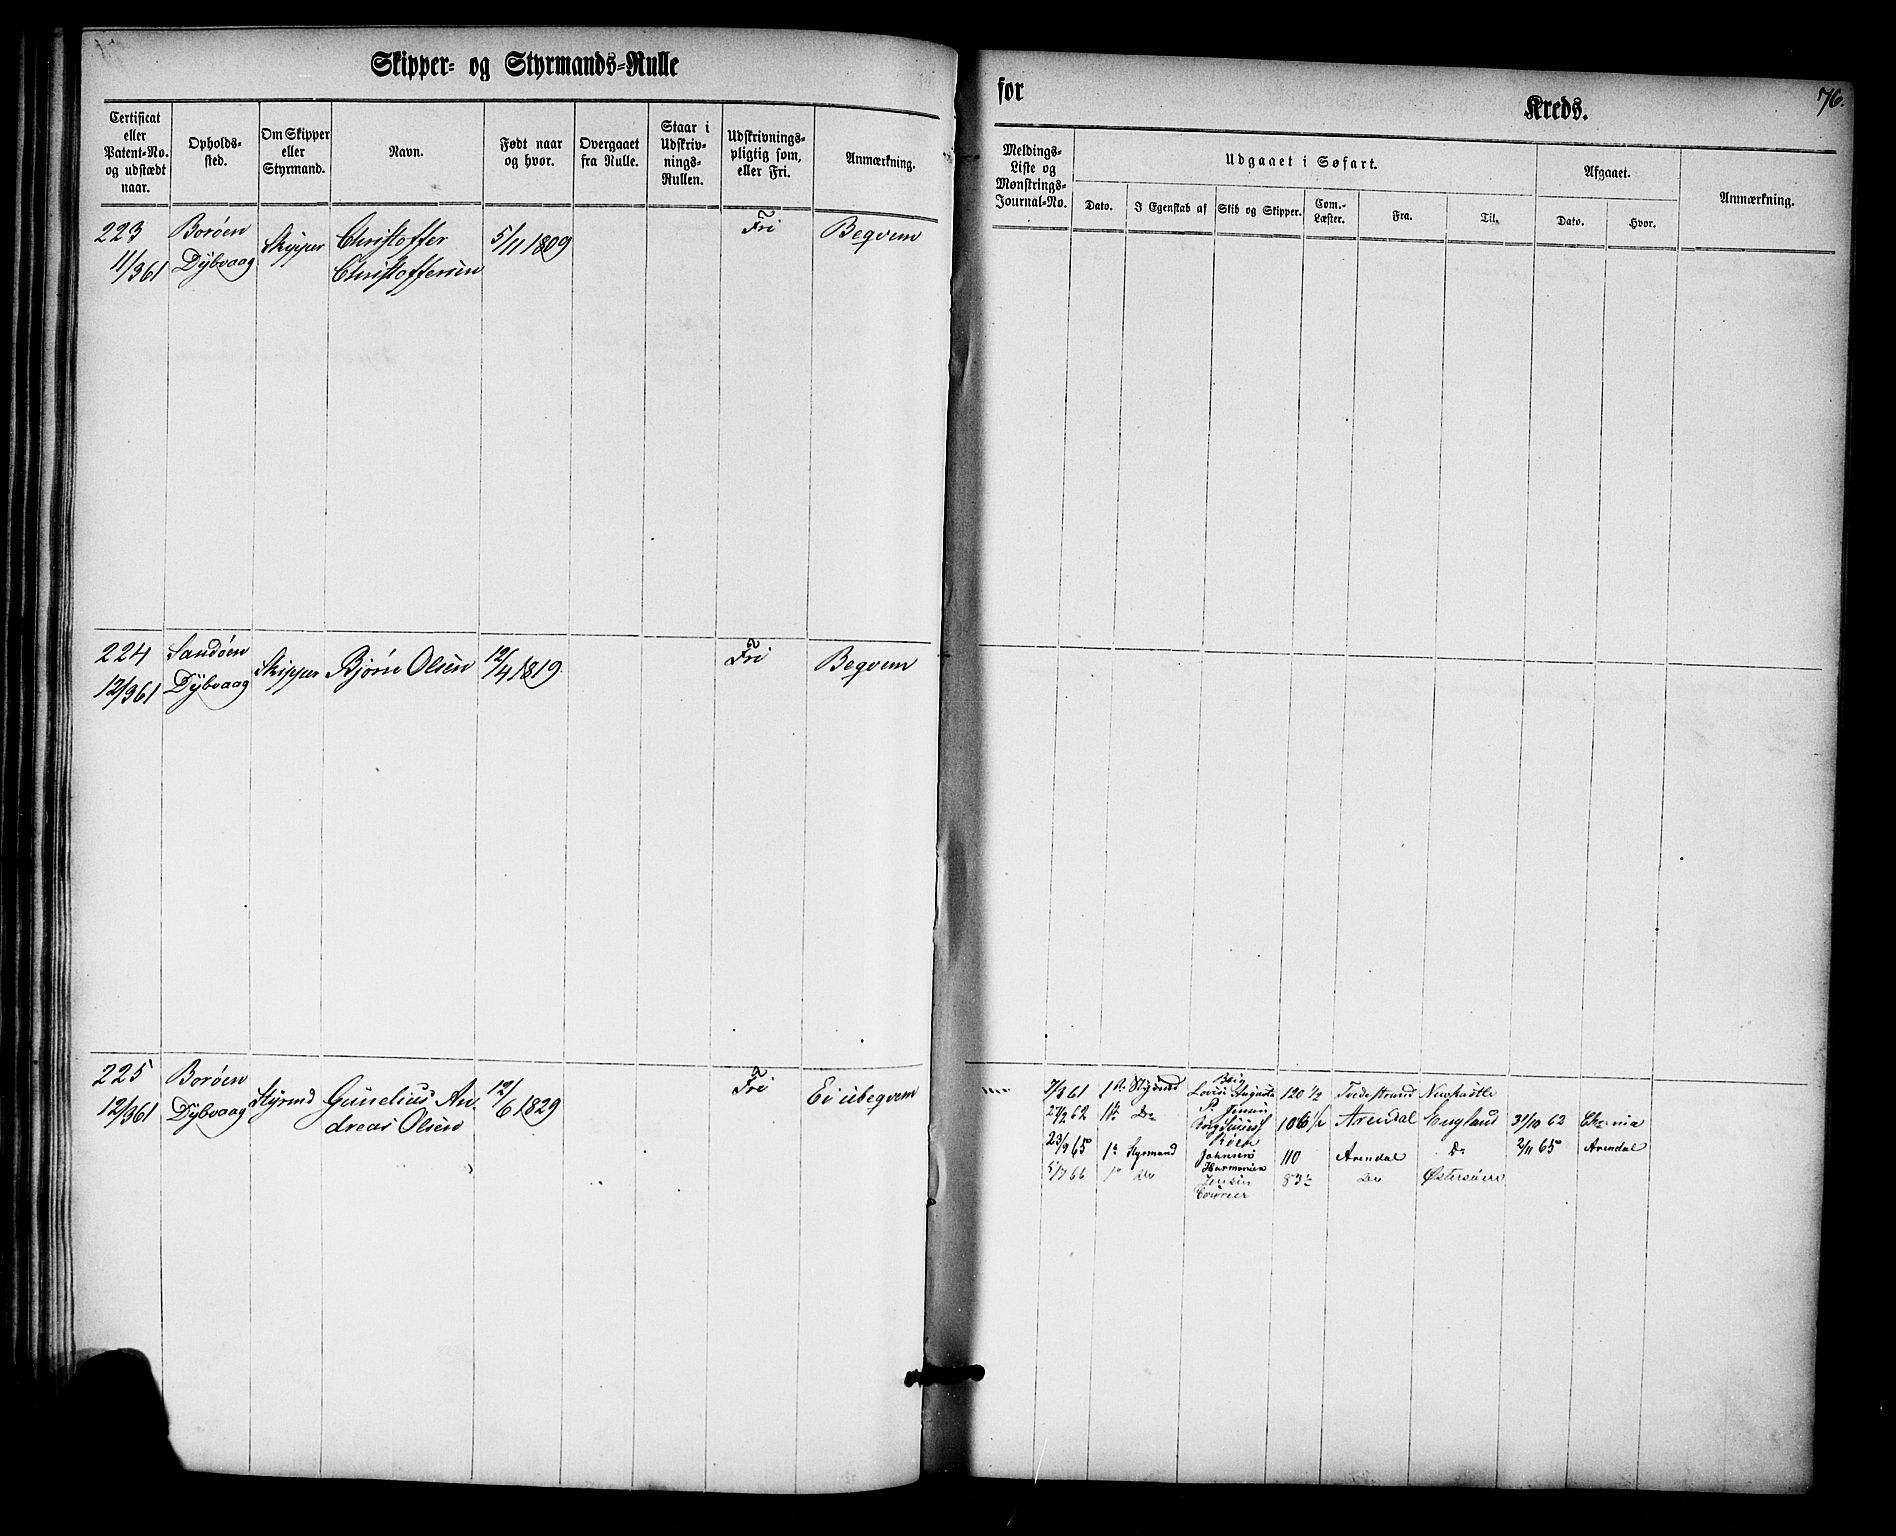 Skipper- og Styrmands-Rulle
Certificat eller Patent-No. og udstædt naar.
Opholds-sted.
Om Skipper eller Styrmand.
Navn.
Født naar og hvor.
Overgaaet fra Rulle.
Staar i Udskriv-nings-Rullen.
Udskrivnings-pligtig som, eller Fri.
Anmærkning.
223 Borøen Skipper Christoffer 5/11 1809 Fri Begvem
11/3 61 Dybvaag Christoffersen
224 Sandøen Skipper Bjørn Olsen 12/4 1819. Fri Begvem
12/3 61 Dybvaag
225 Borøen Styrmd Gunelius An- 12/6 1829 Fri Ei ubegvem
12/3 61 Dybvaag dreas Olsen
for Kreds. 76.
Meldings-Liste og Mønstrings-Journal-No.
Udgaaet i Søfart.
Dato.
I Egenskab af
Skib og Skipper.
Com.-Læster.
Fra.
Til.
Afgaaet.
Dato.
Hvor.
Anmærkning.
7/3 61 1st Styrmd Lovise Augusta 120 1/2 Tvedestrand Newkastle
Jensen
27/2 62 1st Do 106 1/2 Arendal England 31/10 62 Chr.nia
23/9 65 1st Styrmand Johnsen 110 Arendal Do 2/11 65 Arendal
Harmonien
5/7 66 1st Do Jensen 83 1/2 Do Østersøen